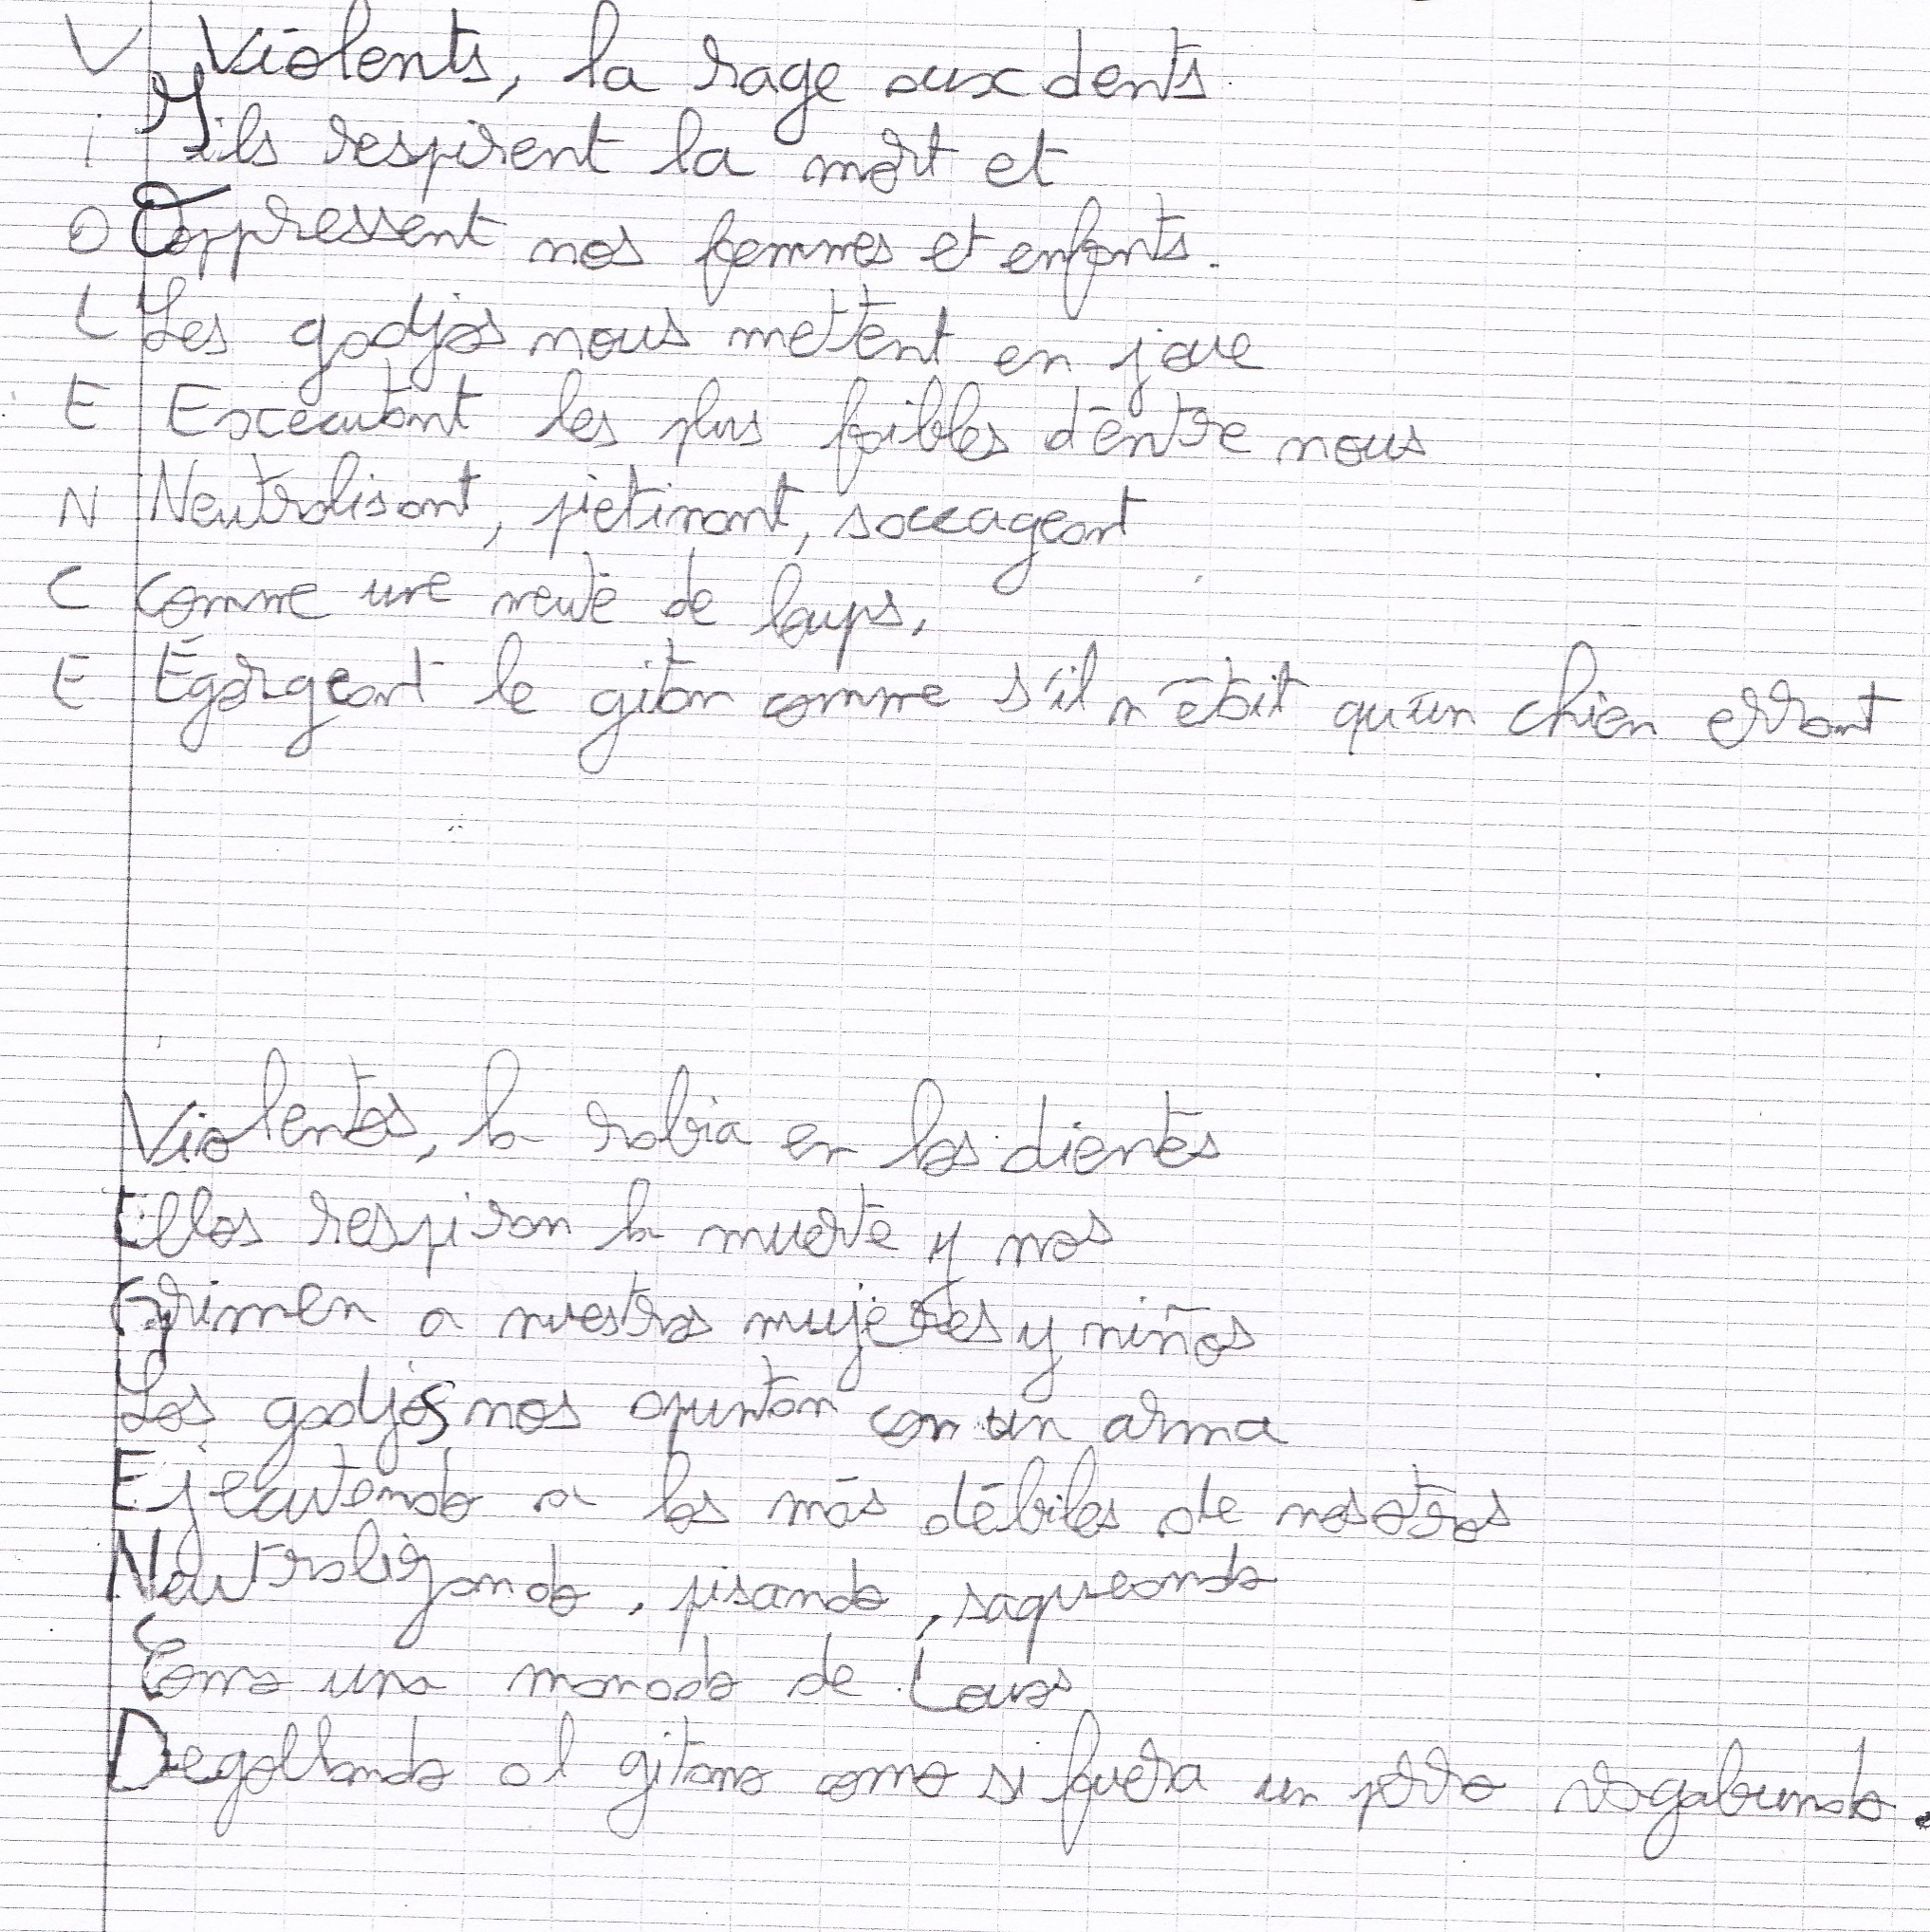 V Violents, la rage aux dents.
i ils respirent la mort et
O Oppressent nos femmes et enfants.
L Les gadjos nous mettent en joue
E Excecutant les plus faibles d'entre nous
N Neutralisant, piétinant, saccageant
C comme une meute de loups,
E Égorgeant le gitan comme s'il n'était qu'un chien errant
Violentos, la rabia en los dientes
Ellos respiran la muerte y nos
primen a nuestras mujeres y niños
Los gadjos nos apuntan con un arma
Ejecutendo a los más débiles de nosotros
Neutralizando, pisando, saqueando
Como una manada de
Degollando al gitano como si fuera un perro vagabundo.